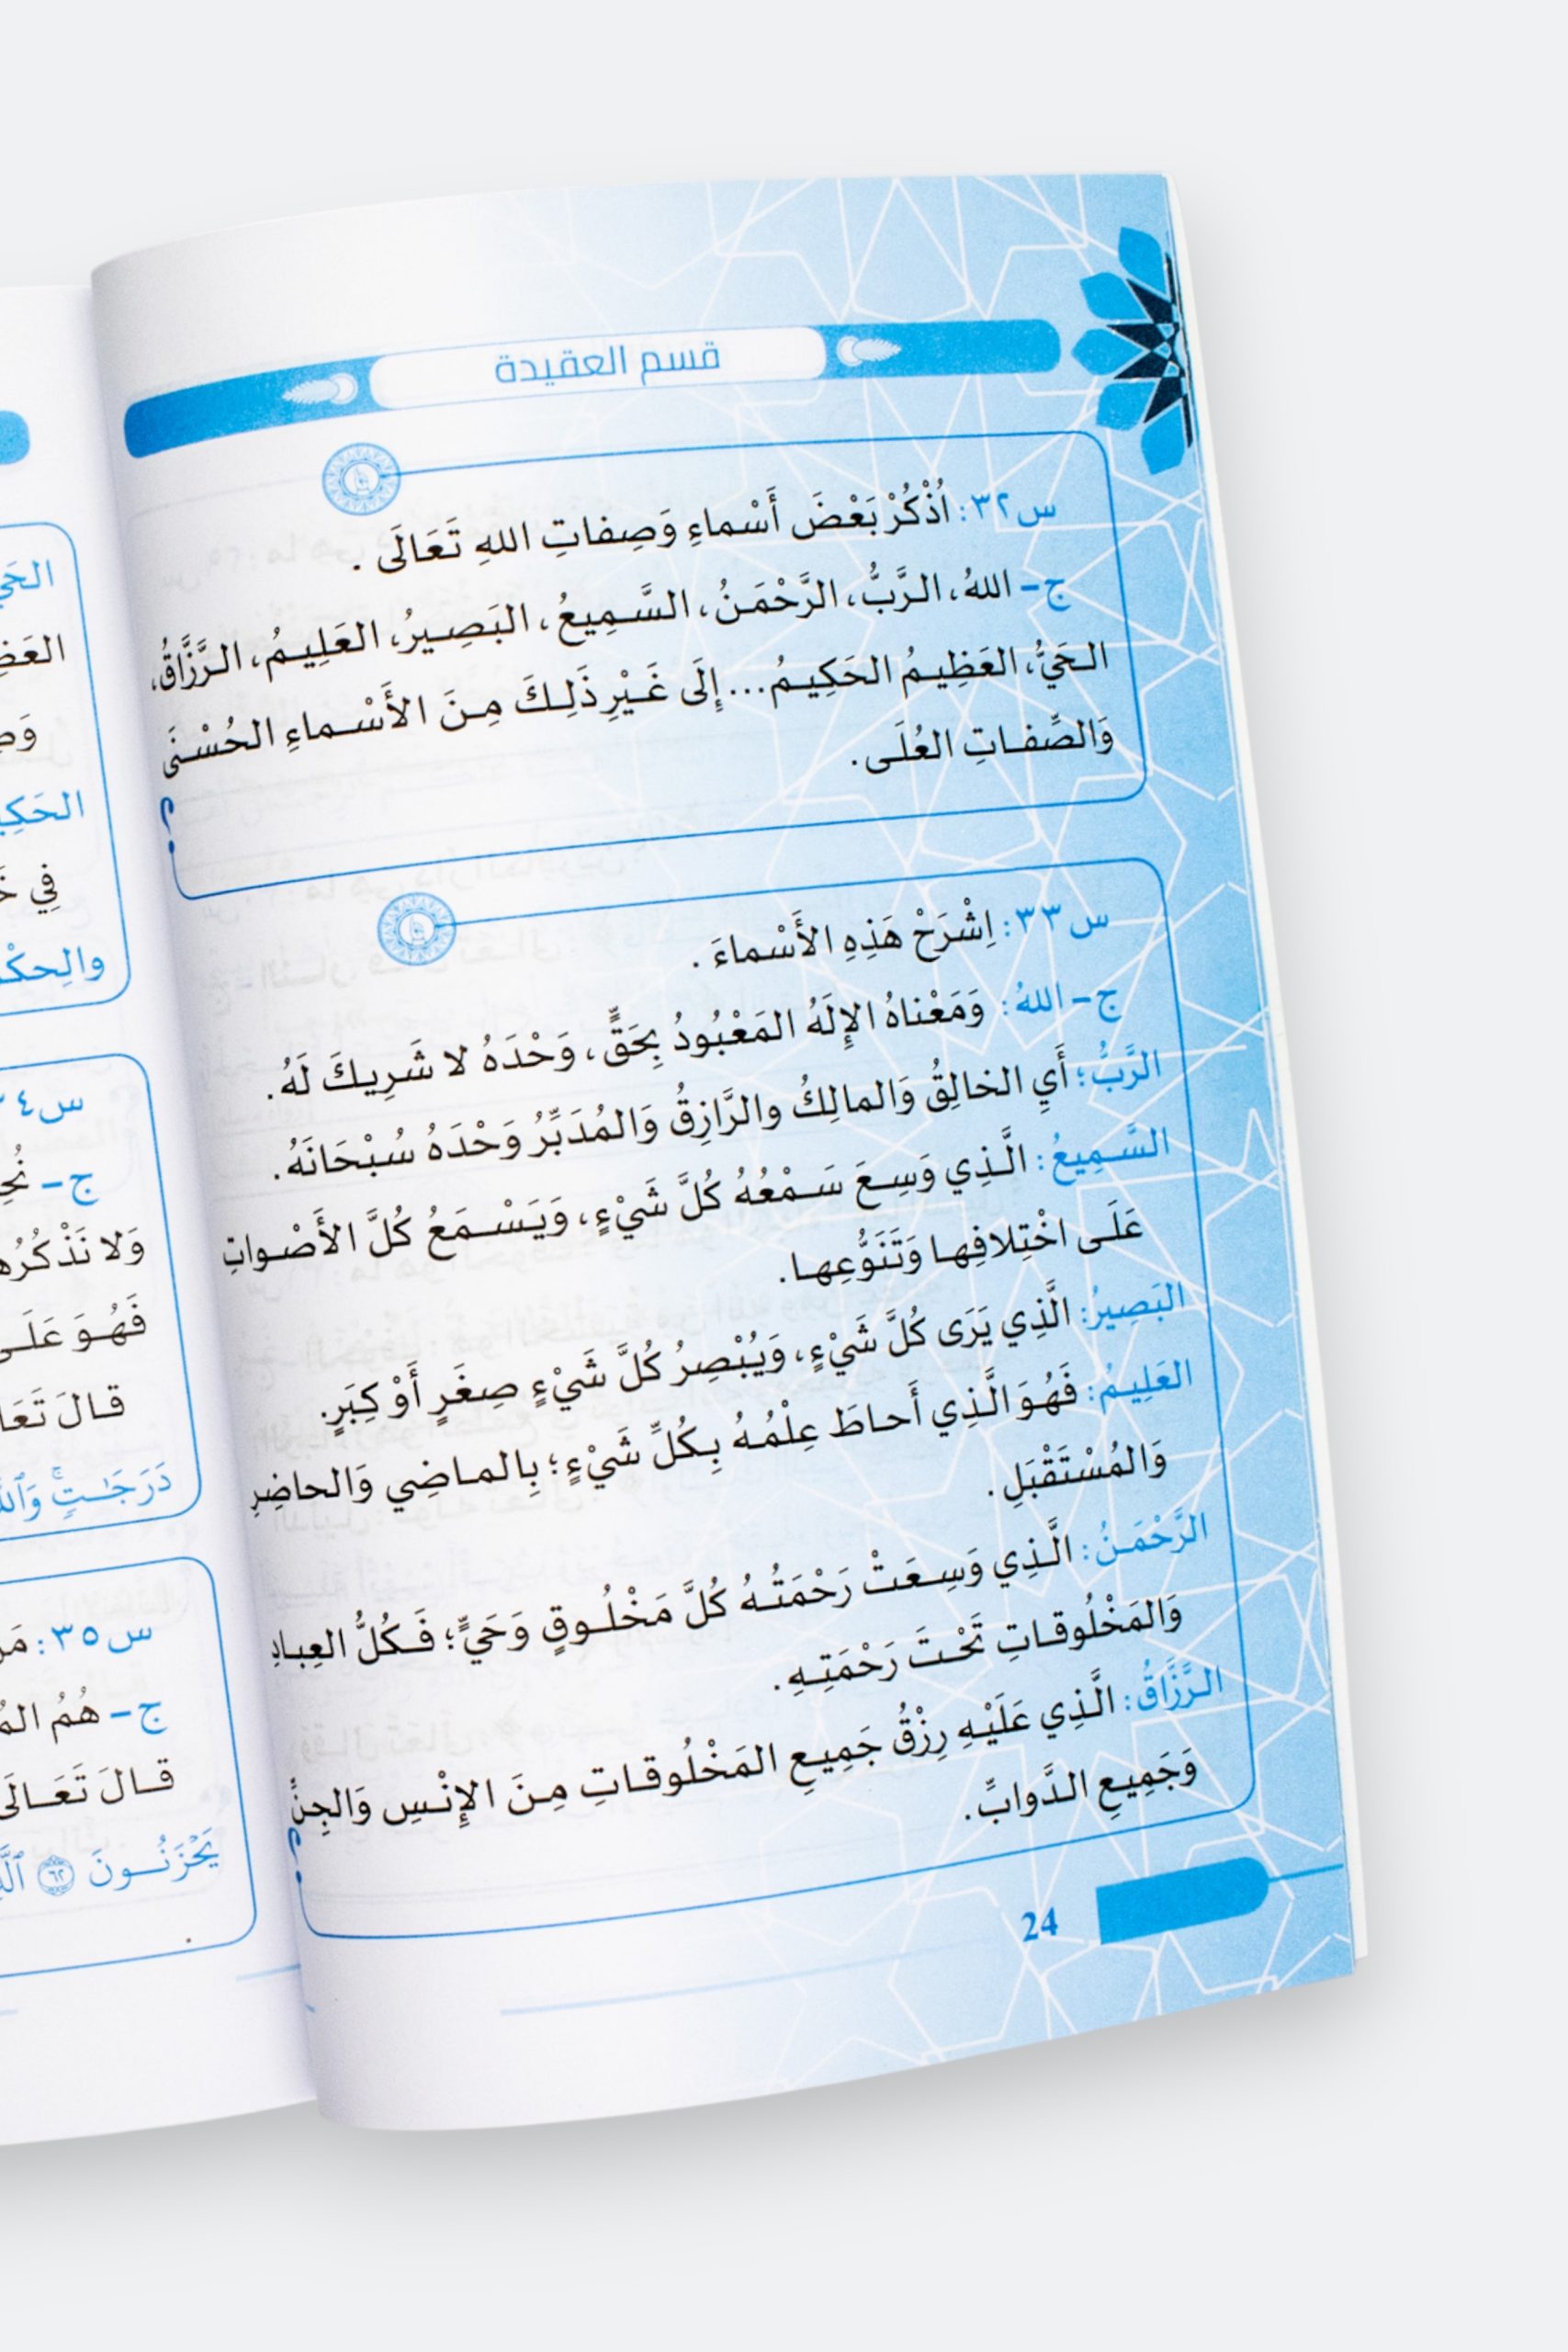 قسم العقيدة
س٣٢: اُذْكُرْ بَعْضَ أَسْماءِ وَصِفاتِ اللهِ تَعَالَى .
ج- اللهُ، الرَّبُّ، الرَّحْمَنُ، السَّمِيعُ، البَصِيرُ، العَلِيمُ، الرَّزَّاقُ،
الحَيُّ، العَظِيمُ الحَكِيمُ... إِلَى غَيْرِ ذَلِكَ مِنَ الأَسْماءِ الحُسْنَى
وَالصِّفاتِ العُلَى.
س٣٣: اِشْرَحْ هَذِهِ الأَسْماءَ .
ج- اللهُ: وَمَعْناهُ الإِلَهُ المَعْبُودُ بِحَقٍّ، وَحْدَهُ لا شَرِيكَ لَهُ.
الرَّبُّ؛ أَيِ الخالِقُ وَالمالِكُ والرَّازِقُ وَالمُدَبِّرُ وَحْدَهُ سُبْحَانَهُ.
السَّمِيعُ: الَّذِي وَسِعَ سَمْعُهُ كُلَّ شَيْءٍ، وَيَسْمَعُ كُلَّ الأَصْواتِ
عَلَى اخْتِلافِها وَتَنَوُّعِها.
البَصِيرُ: الَّذِي يَرَى كُلَّ شَيْءٍ، وَيُبْصِرُ كُلَّ شَيْءٍ صِغَرٍ أَوْ كِبَرٍ.
العَلِيمُ: فَهُوَ الَّذِي أَحاطَ عِلْمُهُ بِكُلِّ شَيْءٍ؛ بِالماضِي وَالحاضِرِ
وَالمُسْتَقْبَلِ.
الرَّحْمَنُ: الَّذِي وَسِعَتْ رَحْمَتُهُ كُلَّ مَخْلُوقٍ وَحَيٍّ؛ فَكُلُّ العِبادِ
وَالمَخْلُوقاتِ تَحْتَ رَحْمَتِهِ.
الرَّزَّاقُ: الَّذِي عَلَيْهِ رِزْقُ جَمِيعِ المَخْلُوقاتِ مِنَ الإِنْسِ وَالجِنِّ
وَجَمِيعِ الدَّوابِّ.
24
في
ج-
وَلا نَذْكُرُ
فَهُوَ عَلَى
قالَ
دَرَجَٰتٍ
س٣٥:
ج- هُمُ
قالَ تَعَالَى
يَحْزَنُونَ ٦٢